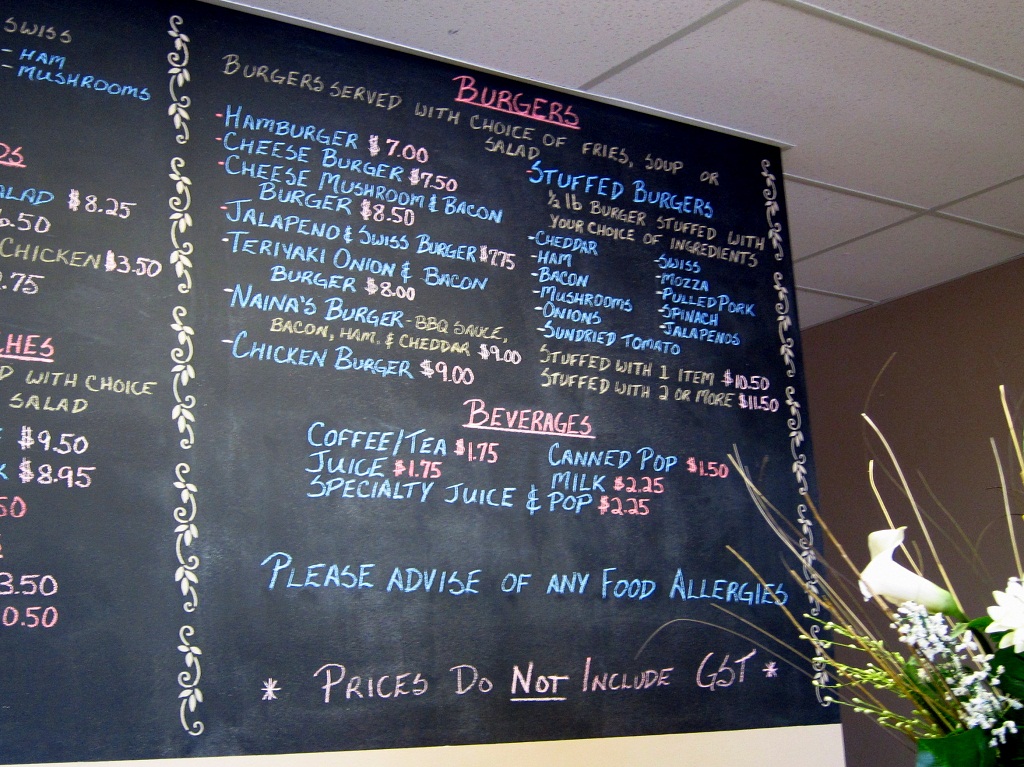 SWISS
- HAM
- MUSHROOMS
$8.25
CHICKEN $3.50
WITH CHOICE
SALAD
$9.50
$8.95
BURGERS
BURGERS SERVED WITH CHOICE OF FRIES, SOUP OR
SALAD
-HAMBURGER $7.00
-CHEESE BURGER $7.50
-CHEESE MUSHROOM & BACON
BURGER $8.50
-JALAPENO & SWISS BURGER $7.75
-TERIYAKI ONION & BACON
BURGER $8.00
-NAINA'S BURGER - BBQ SAUCE,
BACON, HAM, & CHEDDAR $9.00
-CHICKEN BURGER $9.00
-STUFFED BURGERS
½ lb BURGER STUFFED WITH
YOUR CHOICE OF INGREDIENTS
-CHEDDAR
-HAM
-BACON
-MUSHROOMS
-ONIONS
-SUNDRIED TOMATO
-SWISS
-MOZZA
-PULLED PORK
-SPINACH
-JALAPENOS
STUFFED WITH 1 ITEM $10.50
STUFFED WITH 2 OR MORE $11.50
BEVERAGES
COFFEE/TEA $1.75
JUICE $1.75
SPECIALTY JUICE & POP $2.25
CANNED POP $1.50
MILK $2.25
PLEASE ADVISE OF ANY FOOD ALLERGIES
* PRICES DO NOT INCLUDE GST *